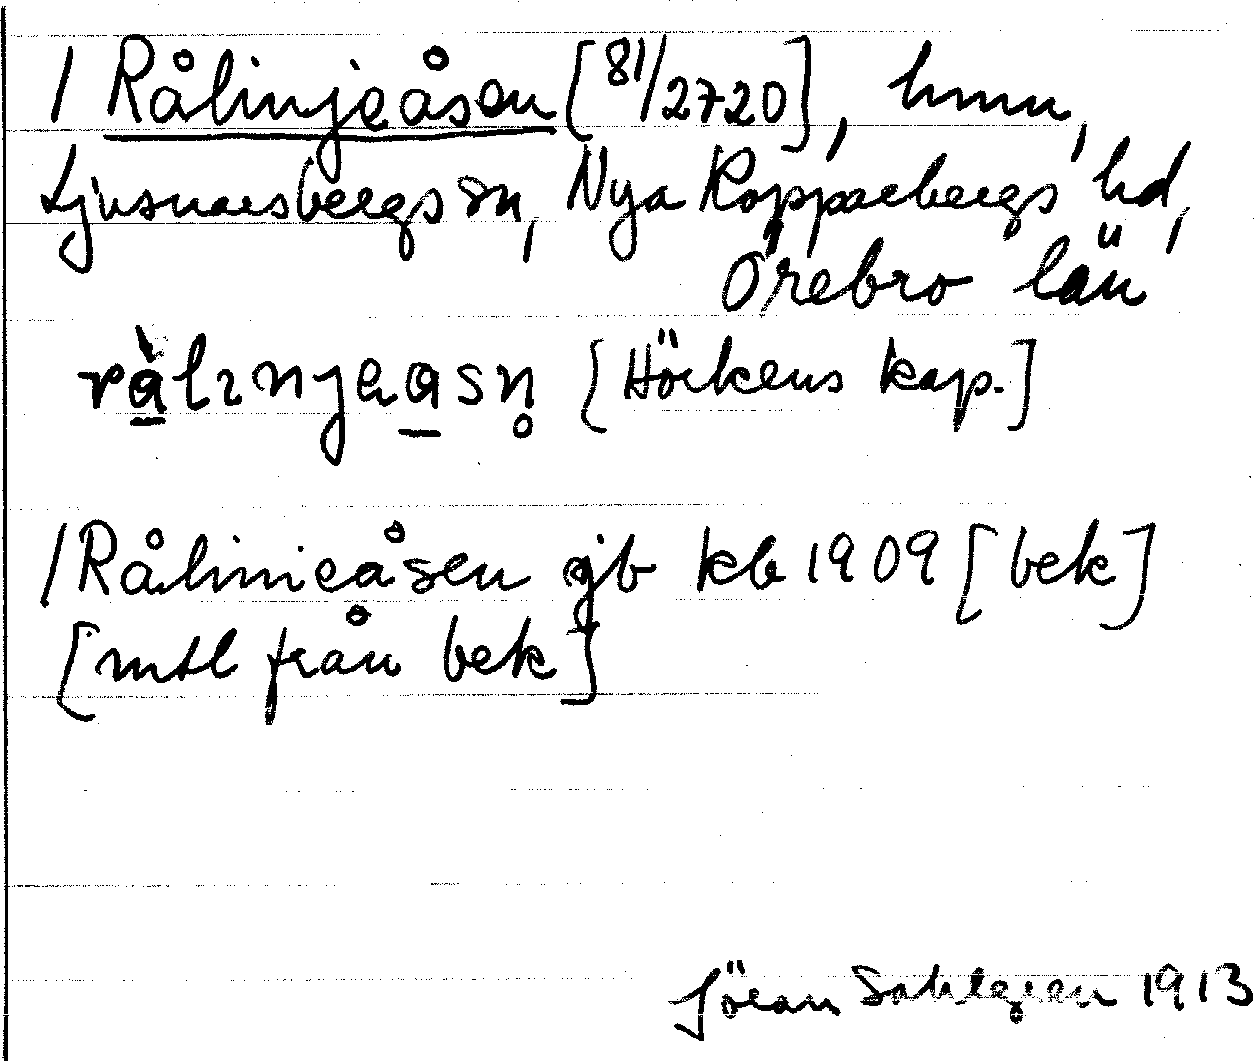 / Rålinjeåsen [81/2720], hmn,
Ljusnarsbergs sn, Nya Kopparbergs hd,
Örebro län
[Hörkens kap.]
/ Rålinieåsen gb kb 1909 [bek]
[mtl från bek]
Jöran Sahlgren 1913